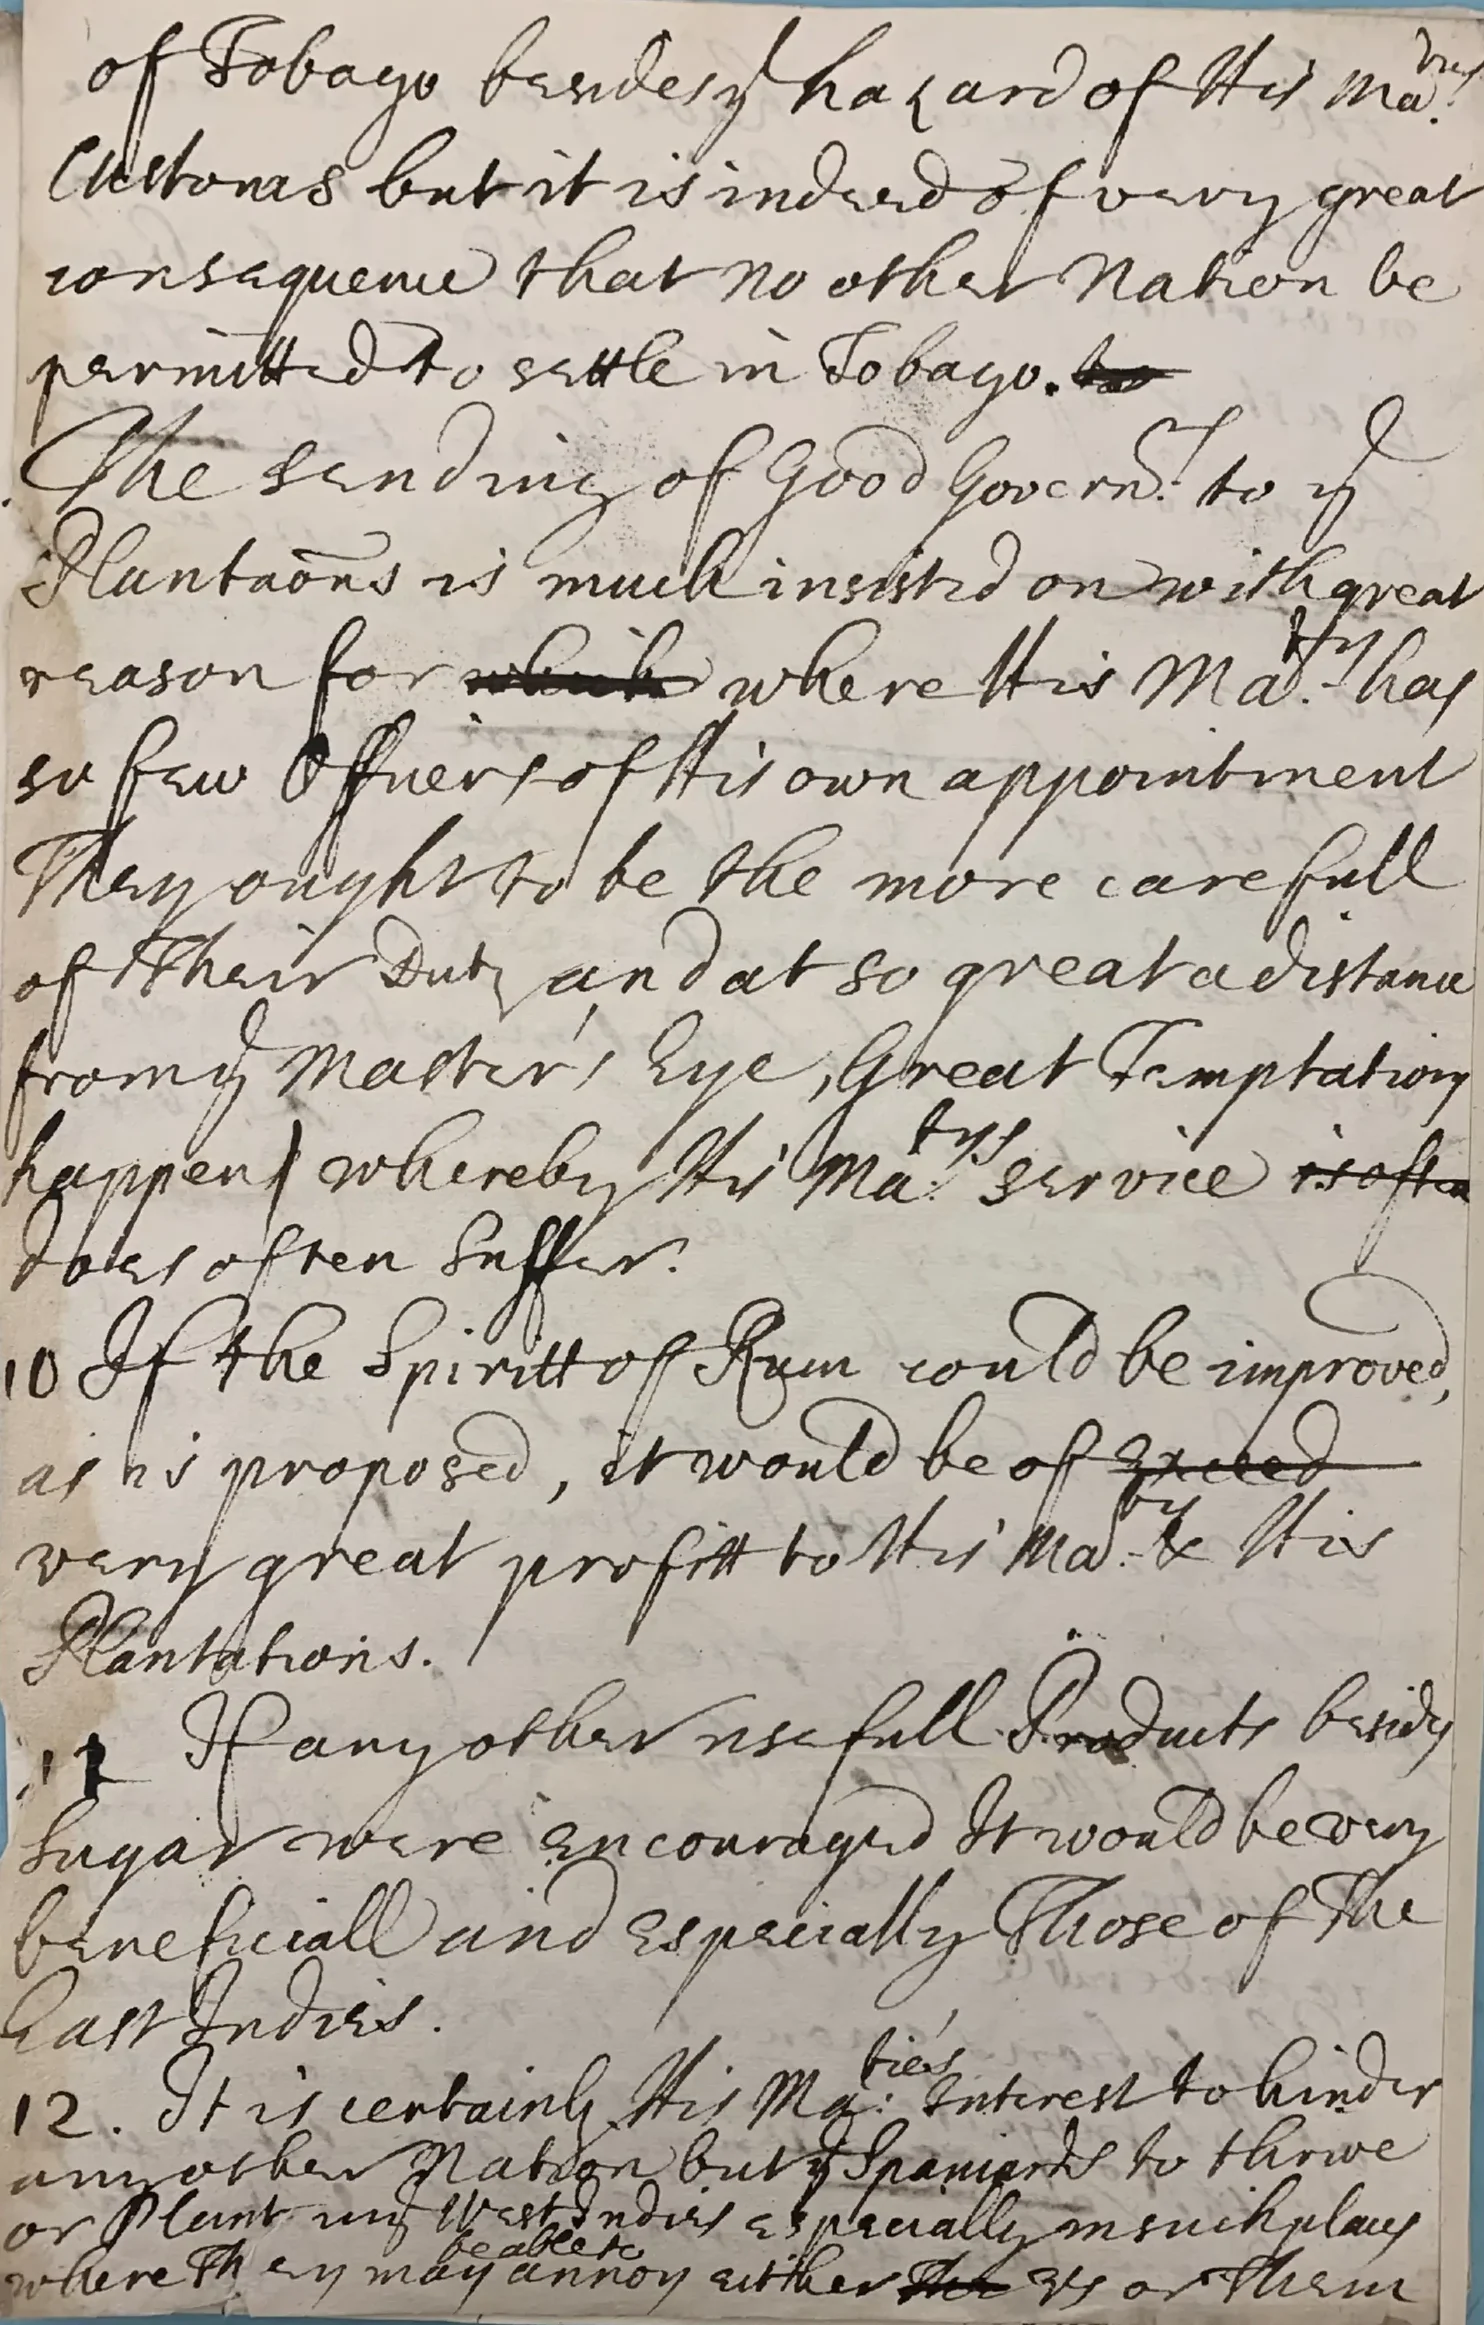 of Tobago besides ye hazard of His Ma:ties
Customs but it is indeed of very great
consequence that no other Nation be
permitted to settle in Tobago. to
The sending of Good Governrs. to ye
Plantaōns is much insisted on with great
reason for which where His Ma:ty has
so few Officers of His own appointment
They ought to be the more carefull
of Their Duty, and at so great a distance
from ye Master's Eye, Great Temptations
happen, whereby His Ma:tys service is often
does often suffer.
10 If the Spiritt of Rum could be improved,
as is proposed, it would be of Exceed
very great profitt to His Ma:ty & His
Plantations.
11 If any other usefull Products besides
Sugar were encouraged It would be very
beneficiall and especially Those of The
East Indies.
12. It is certainly His Ma:tie's Interest to hinder
any other Nation but ye Spaniards to thrive
or Plant in ye West Indies especially in such places
be able to
where They may annoy either the Us or Them